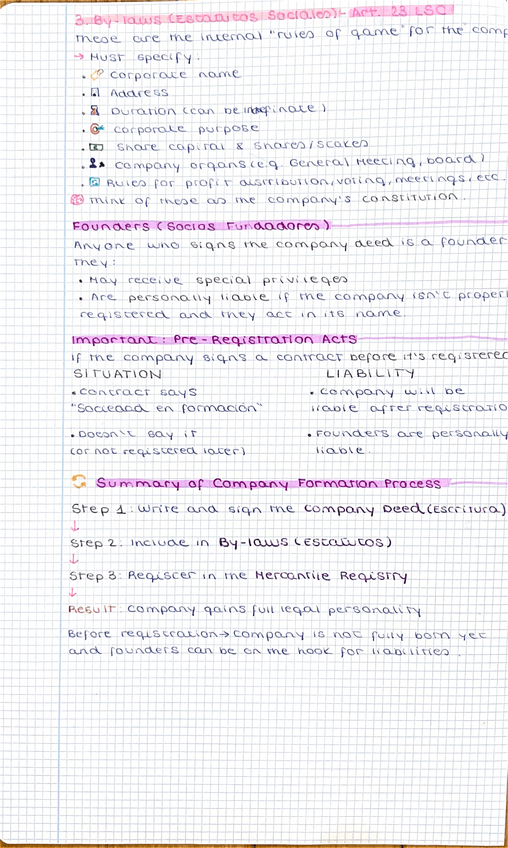 3. By-laws (Estatutos Sociales) - Art. 23 LSC
These are the internal "rules of game" for the comp
→ Must specify:
• Corporate name
• Address
• Duration (can be )
• Corporate purpose
• Share capital & shares/stakes
• Company organs (e.g. General Meeting, board)
• Rules for profit distribution, voting, meetings, etc.
Think of these as the company's constitution.
Founders (Socios Fundadores)
Anyone who signs the company deed is a founder
They:
• May receive special privileges
• Are personally liable if the company isn't properl
registered and they act in its name.
Important: Pre-Registration Acts
If the company signs a contract before it's registered
SITUATION LIABILITY
• Contract says • Company will be
"Sociedad en formación" liable after registratio
• Doesn't say it • Founders are personally
(or not registered later) liable.
Summary of Company Formation Process
Step 1: Write and sign the Company Deed (Escritura)
↓
Step 2: Include in By-laws (Estatutos)
↓
Step 3: Register in the Mercantile Registry
↓
Result: Company gains full legal personality
Before registration → Company is not fully born yet
and founders can be on the hook for liabilities.